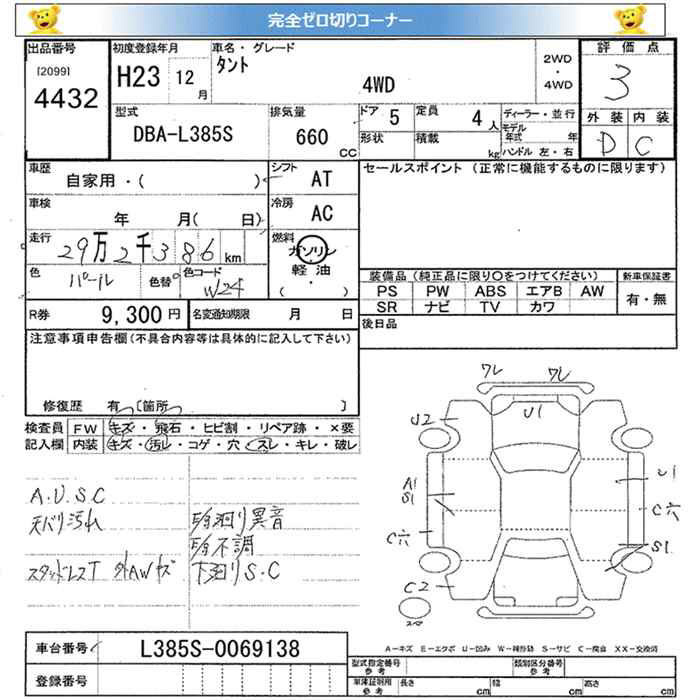 完全ゼロ切りコーナー
出品番号
[2099]
4432
初度登録年月
H23 12月
車名・グレード
タント
4WD
2WD
・
4WD
評価点
3
外装 内装
D C
型式
DBA-L385S
排気量
660
cc
ドア 5
定員 4人
形状
積載 kg
ディーラー・並行
モデル年式 年
ハンドル 左・右
車歴
自家用・( )
シフト AT
車検
年 月( 日)
冷房 AC
走行
29万2千386km
燃料
ガソリン
軽油
( )
色 パール
色替
色コード W24
セールスポイント (正常に機能するものに限ります)
装備品 (純正品に限り○をつけてください)
PS PW ABS エアB AW
SR ナビ TV カワ
新車保証書
有・無
後日品
R券 9,300円
名変通知期限 月 日
注意事項申告欄(不具合内容等は具体的に記入して下さい)
修復歴 有 [箇所 ]
検査員 FW キズ・飛石・ヒビ割・リペア跡・×要
記入欄 内装 キズ・汚レ・コゲ・穴・スレ・キレ・破レ
A.U.S.C
天バリ汚れ
スタッドレスT 外AWキズ
下廻りS.C
不調
異音
ワレ ワレ
U1
U2
A1
S1
C穴
C2
U1
C穴
S1
A-キズ E-エクボ U-凹み W-補修跡 S-サビ C-腐食 XX-交換済
車台番号 L385S-0069138
登録番号
型式指定番号
参考
類別区分番号
参考
車庫証明用
参考
長さ cm
幅 cm
高さ cm